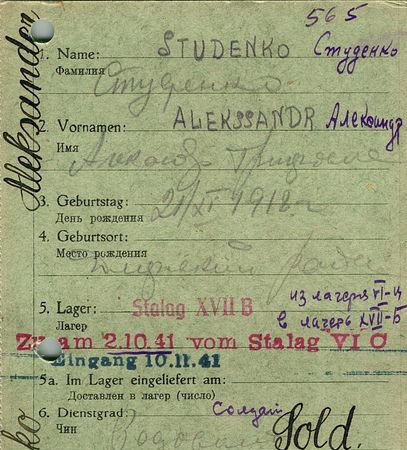 565
Aleksander
1. Name: STUDENKO Студенко
Фамилия
Студенко
2. Vornamen: ALEKSSANDR Александр
Имя
3. Geburtstag: 21/XI 1918 г
День рождения
4. Geburtsort:
Место рождения
5. Lager: Stalag XVII B из лагеря VI-Ц
Лагерь в лагерь XVII-Б
Zu am 2.10.41 vom Stalag VI C
Eingang 10.11.41
5a. Im Lager eingeliefert am:
Доставлен в лагер (число)
6. Dienstgrad: Солдат
Чин Sold.